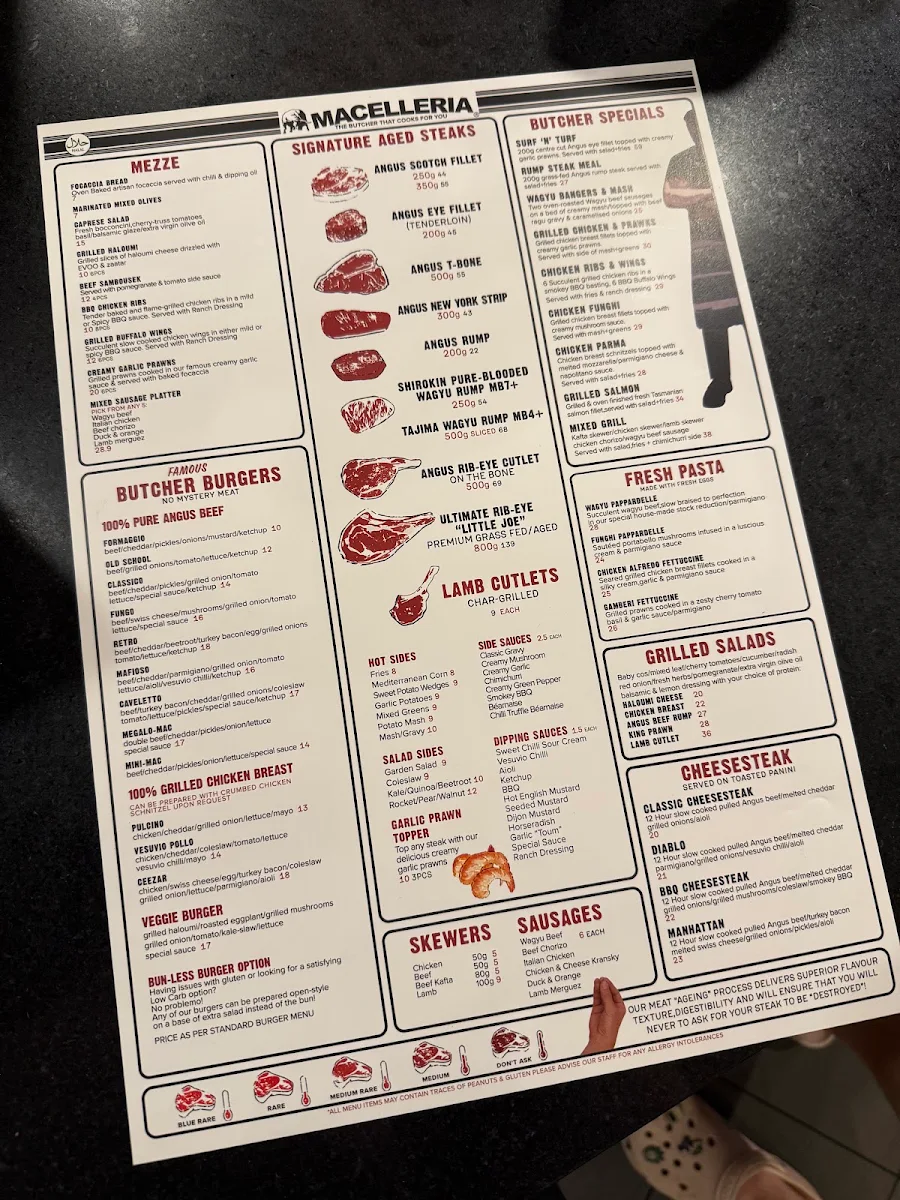 MACELLERIA
THE BUTCHER THAT COOKS FOR YOU
حلال
HALAL
MEZZE
FOCACCIA BREAD
Oven Baked artisan focaccia served with chilli & dipping oil
7
MARINATED MIXED OLIVES
7
CAPRESE SALAD
Fresh bocconcini,cherry-truss tomatoes
basil/balsamic glaze/extra virgin olive oil
15
GRILLED HALOUMI
Grilled slices of haloumi cheese drizzled with
EVOO & zaatar
10 6PCS
BEEF SAMBOUSEK
Served with pomegranate & tomato side sauce
12 4PCS
BBQ CHICKEN RIBS
Tender baked and flame-grilled chicken ribs in a mild
or Spicy BBQ sauce. Served with Ranch Dressing
10 6PCS
GRILLED BUFFALO WINGS
Succulent slow cooked chicken wings in either mild or
spicy BBQ sauce. Served with Ranch Dressing
12 6PCS
CREAMY GARLIC PRAWNS
Grilled prawns cooked in our famous creamy garlic
sauce & served with baked focaccia
20 6PCS
MIXED SAUSAGE PLATTER
PICK FROM ANY 5:
Wagyu beef
Italian chicken
Beef chorizo
Duck & orange
Lamb merguez
28.9
FAMOUS
BUTCHER BURGERS
NO MYSTERY MEAT
100% PURE ANGUS BEEF
FORMAGGIO
beef/cheddar/pickles/onions/mustard/ketchup 10
OLD SCHOOL
beef/grilled onions/tomato/lettuce/ketchup 12
CLASSICO
beef/cheddar/pickles/grilled onion/tomato
lettuce/special sauce/ketchup 14
FUNGO
beef/swiss cheese/mushrooms/grilled onion/tomato
lettuce/special sauce 16
RETRO
beef/cheddar/beetroot/turkey bacon/egg/grilled onions
tomato/lettuce/ketchup 18
MAFIOSO
beef/cheddar/parmigiano/grilled onion/tomato
lettuce/aioli/vesuvio chilli/ketchup 16
CAVELETTO
beef/turkey bacon/cheddar/grilled onions/coleslaw
tomato/lettuce/pickles/special sauce/ketchup 17
MEGALO-MAC
double beef/cheddar/pickles/onion/lettuce
special sauce 17
MINI-MAC
beef/cheddar/pickles/onion/lettuce/special sauce 14
100% GRILLED CHICKEN BREAST
CAN BE PREPARED WITH CRUMBED CHICKEN
SCHNITZEL UPON REQUEST
PULCINO
chicken/cheddar/grilled onion/lettuce/mayo 13
VESUVIO POLLO
chicken/cheddar/coleslaw/tomato/lettuce
vesuvio chilli/mayo 14
CEEZAR
chicken/swiss cheese/egg/turkey bacon/coleslaw
grilled onion/lettuce/parmigiano/aioli 18
VEGGIE BURGER
grilled haloumi/roasted eggplant/grilled mushrooms
grilled onion/tomato/kale-slaw/lettuce
special sauce 17
BUN-LESS BURGER OPTION
Having issues with gluten or looking for a satisfying
Low Carb option?
No problemo!
Any of our burgers can be prepared open-style
on a base of extra salad instead of the bun!
PRICE AS PER STANDARD BURGER MENU
SIGNATURE AGED STEAKS
ANGUS SCOTCH FILLET
250g 44
350g 55
ANGUS EYE FILLET
(TENDERLOIN)
200g 45
ANGUS T-BONE
500g 55
ANGUS NEW YORK STRIP
300g 43
ANGUS RUMP
200g 22
SHIROKIN PURE-BLOODED
WAGYU RUMP MB7+
250g 54
TAJIMA WAGYU RUMP MB4+
500g SLICED 68
ANGUS RIB-EYE CUTLET
ON THE BONE
500g 69
ULTIMATE RIB-EYE
"LITTLE JOE"
PREMIUM GRASS FED/AGED
800g 139
LAMB CUTLETS
CHAR-GRILLED
9 EACH
HOT SIDES
Fries 8
Mediterranean Corn 8
Sweet Potato Wedges 9
Garlic Potatoes 9
Mixed Greens 9
Potato Mash 9
Mash/Gravy 10
SALAD SIDES
Garden Salad 9
Coleslaw 9
Kale/Quinoa/Beetroot 10
Rocket/Pear/Walnut 12
GARLIC PRAWN
TOPPER
Top any steak with our
delicious creamy
garlic prawns
10 3PCS
SIDE SAUCES 2.5 EACH
Classic Gravy
Creamy Mushroom
Creamy Garlic
Chimichurri
Creamy Green Pepper
Smokey BBQ
Béarnaise
Chilli Truffle Béarnaise
DIPPING SAUCES 1.5 EACH
Sweet Chilli Sour Cream
Vesuvio Chilli
Aioli
Ketchup
BBQ
Hot English Mustard
Seeded Mustard
Dijon Mustard
Horseradish
Garlic "Toum"
Special Sauce
Ranch Dressing
SKEWERS
Chicken 50g 5
Beef 50g 5
Beef Kafta 80g 5
Lamb 100g 9
SAUSAGES
Wagyu Beef 6 EACH
Beef Chorizo
Italian Chicken
Chicken & Cheese Kransky
Duck & Orange
Lamb Merguez
BUTCHER SPECIALS
SURF 'N' TURF
200g centre cut Angus eye fillet topped with creamy
garlic prawns. Served with salad+fries 59
RUMP STEAK MEAL
200g grass-fed Angus rump steak served with
salad+fries 27
WAGYU BANGERS & MASH
Two oven-roasted Wagyu beef sausages
on a bed of creamy mash/topped with beef
ragu gravy & caramelised onions 25
GRILLED CHICKEN & PRAWNS
Grilled chicken breast fillets topped with
creamy garlic prawns.
Served with side of mash+greens 30
CHICKEN RIBS & WINGS
6 Succulent grilled chicken ribs in a
smokey BBQ basting, 6 BBQ Buffalo Wings
Served with fries & ranch dressing 29
CHICKEN FUNGHI
Grilled chicken breast fillets topped with
creamy mushroom sauce.
Served with mash+greens 29
CHICKEN PARMA
Chicken breast schnitzels topped with
melted mozzarella/parmigiano cheese &
napolitano sauce.
Served with salad+fries 28
GRILLED SALMON
Grilled & oven finished fresh Tasmanian
salmon fillet,served with salad+fries 34
MIXED GRILL
Kafta skewer/chicken skewer/lamb skewer
chicken chorizo/wagyu beef sausage
Served with salad,fries + chimichurri side 38
FRESH PASTA
MADE WITH FRESH EGGS
WAGYU PAPPARDELLE
Succulent wagyu beef,slow braised to perfection
in our special house-made stock reduction/parmigiano
28
FUNGHI PAPPARDELLE
Sautéed portabello mushrooms infused in a luscious
cream & parmigiano sauce
24
CHICKEN ALFREDO FETTUCCINE
Seared grilled chicken breast fillets cooked in a
silky cream,garlic & parmigiano sauce
25
GAMBERI FETTUCCINE
Grilled prawns cooked in a zesty cherry tomato
basil & garlic sauce/parmigiano
26
GRILLED SALADS
Baby cos/mixed leaf/cherry tomatoes/cucumber/radish
red onion/fresh herbs/pomegranate/extra virgin olive oil
balsamic & lemon dressing with your choice of protein:
HALOUMI CHEESE 20
CHICKEN BREAST 22
ANGUS BEEF RUMP 27
KING PRAWN 28
LAMB CUTLET 36
CHEESESTEAK
SERVED ON TOASTED PANINI
CLASSIC CHEESESTEAK
12 Hour slow cooked pulled Angus beef/melted cheddar
grilled onions/aioli
20
DIABLO
12 Hour slow cooked pulled Angus beef/melted cheddar
parmigiano/grilled onions/vesuvio chilli/aioli
21
BBQ CHEESESTEAK
12 Hour slow cooked pulled Angus beef/melted cheddar
grilled onions/grilled mushrooms/coleslaw/smokey BBQ
22
MANHATTAN
12 Hour slow cooked pulled Angus beef/turkey bacon
melted swiss cheese/grilled onions/pickles/aioli
23
OUR MEAT "AGEING" PROCESS DELIVERS SUPERIOR FLAVOUR
TEXTURE,DIGESTIBILITY AND WILL ENSURE THAT YOU WILL
NEVER TO ASK FOR YOUR STEAK TO BE "DESTROYED"!
BLUE RARE
RARE
MEDIUM RARE
MEDIUM
DON'T ASK
*ALL MENU ITEMS MAY CONTAIN TRACES OF PEANUTS & GLUTEN PLEASE ADVISE OUR STAFF FOR ANY ALLERGY INTOLERANCES